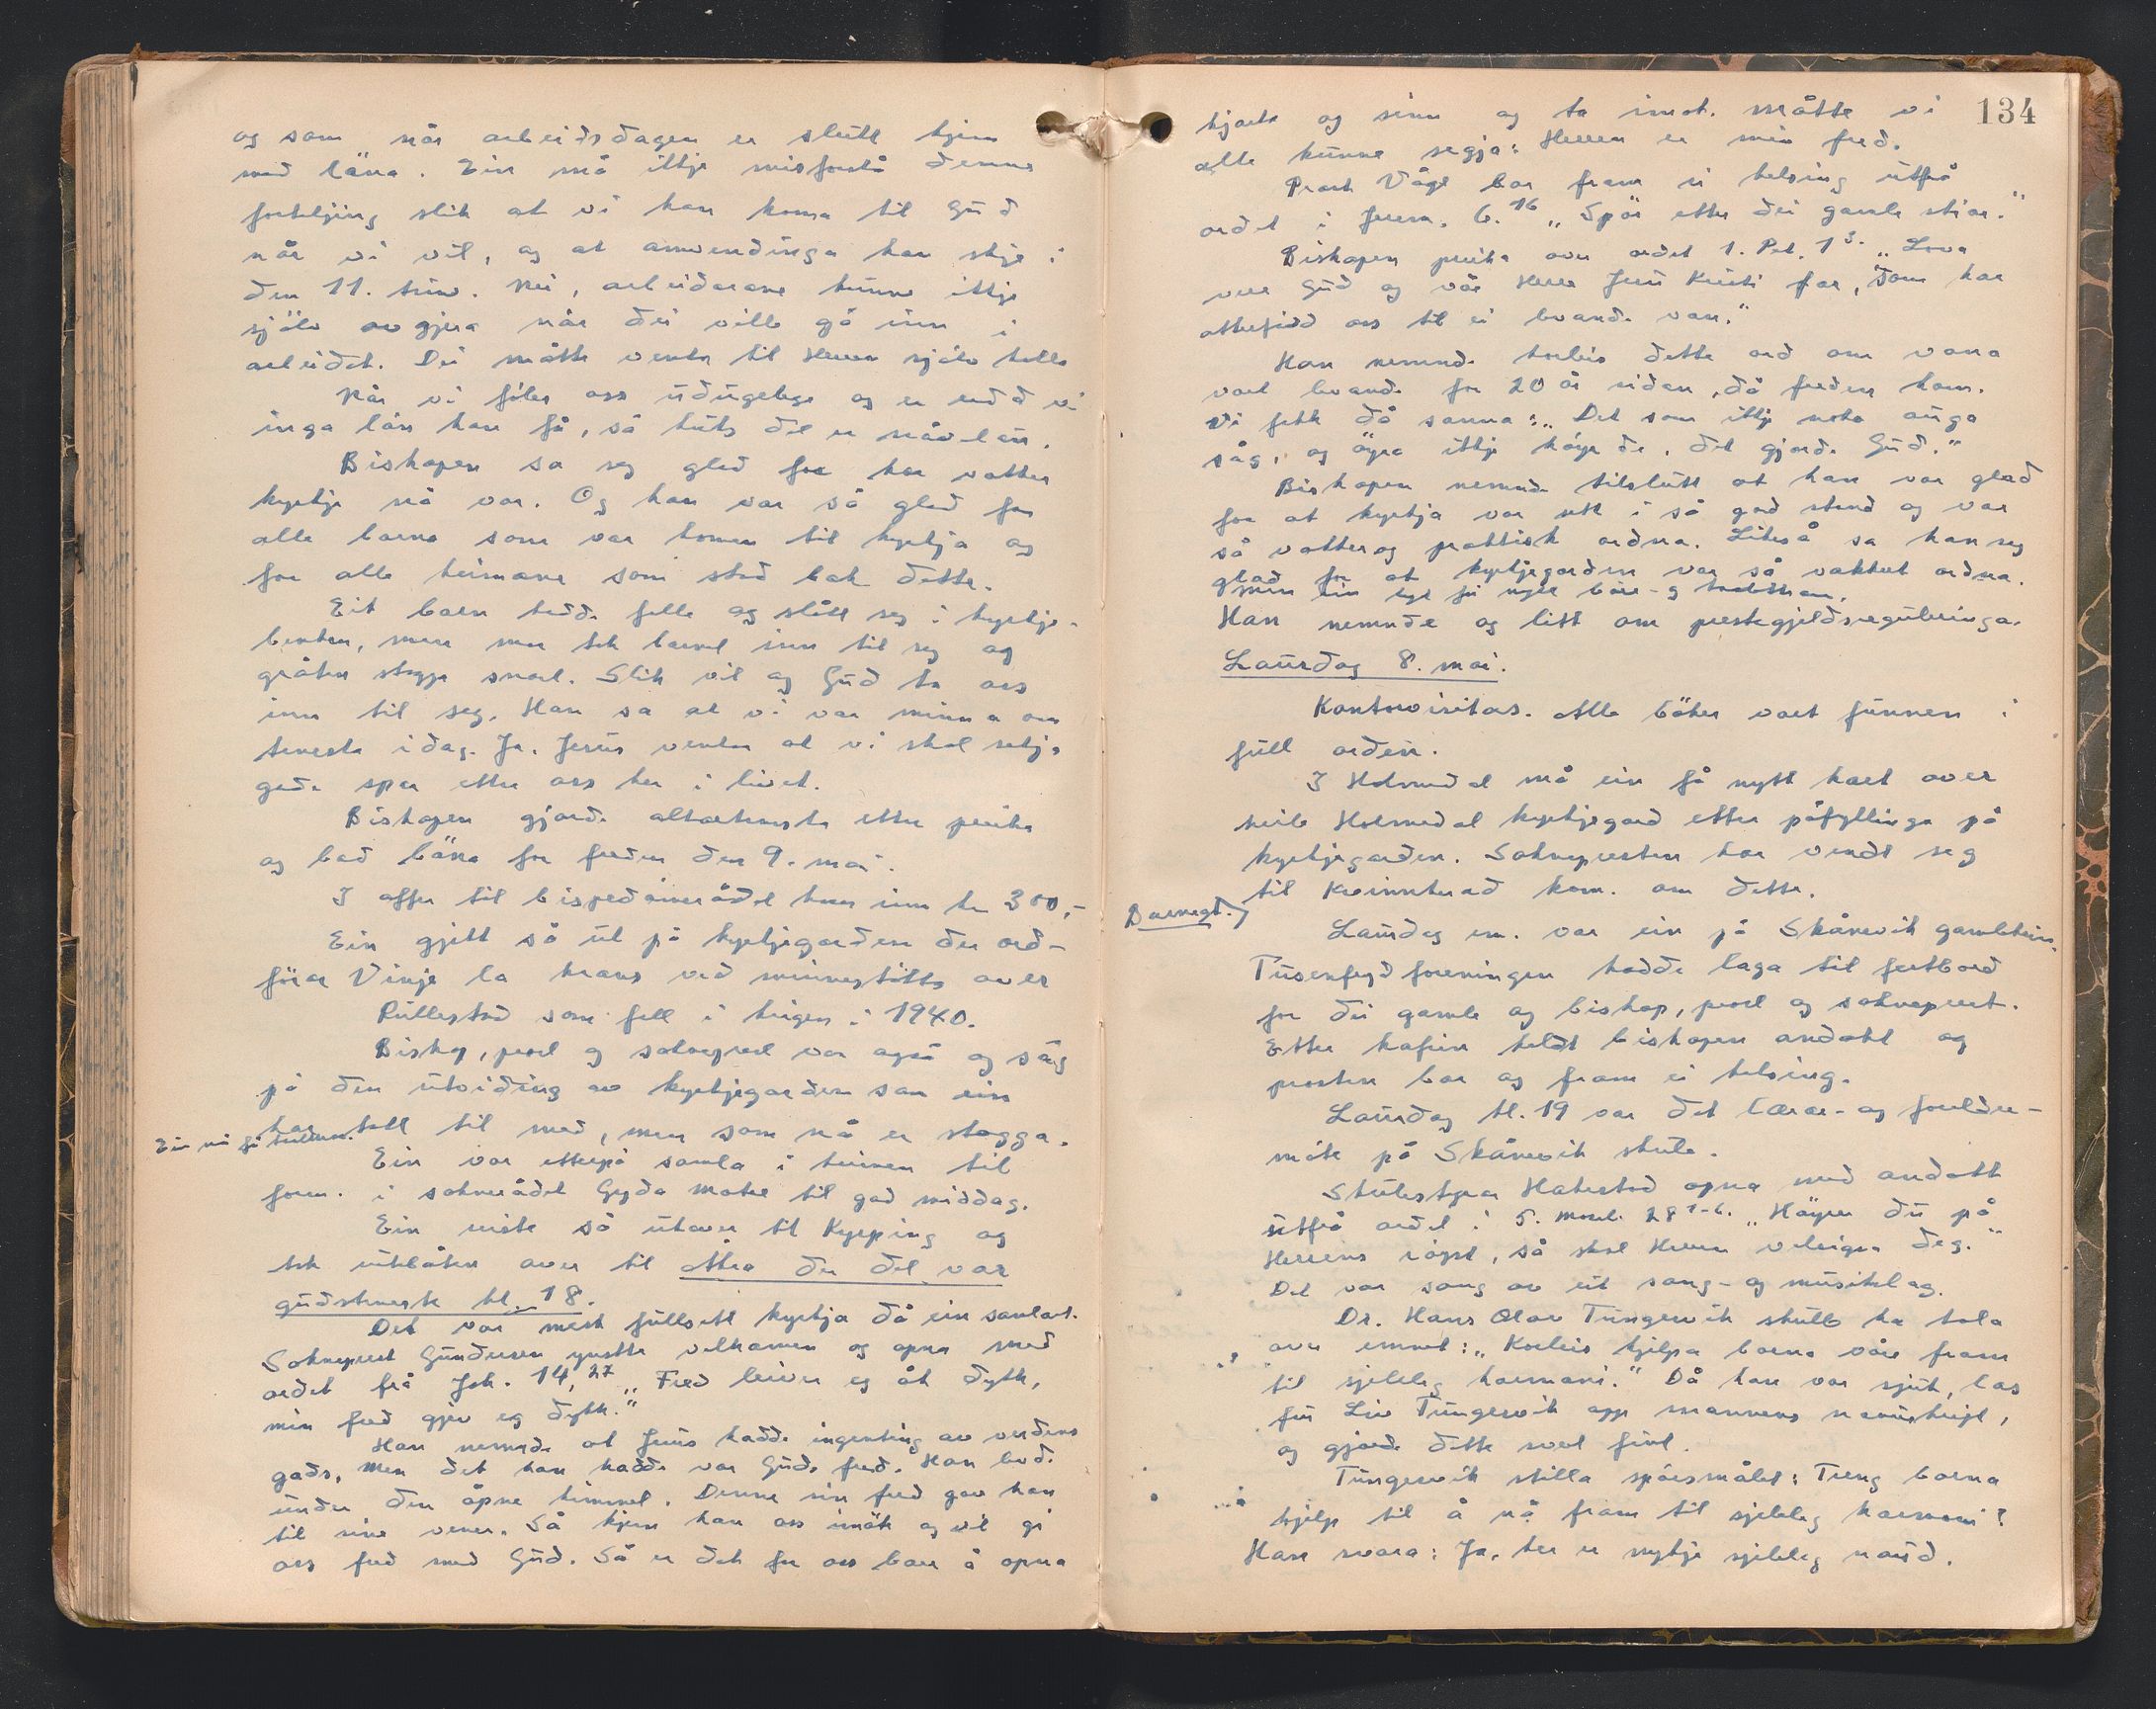 og som når arbeidsdagen er slutt kjem
med løna. Ein må ikkje misforstå denne
forteljing slik at vi kan koma til Gud
når vi vil, og at omvendinga kan skje i
den 11. time. Nei, arbeidarane kunne ikkje
sjølv avgjera når dei ville gå inn i
arbeidet. Dei måtte venta til Herren sjølv kalla
Når vi føler oss udugelege og er redd vi
inga løn kan få, så
Biskopen sa seg glad for kor vakker
kyrkje nå var. Og han var så glad for
alle borna som var komen til kyrkja og
for alle heimane som stod bak dette.
Eit barn hadde falle og slått seg i kyrkje-
benken, men mor tok barnet inn til seg og
gråten stogga snart. Slik vil og Gud ta oss
inn til seg. Han sa at vi var minna om
tenesta i dag. Ja, Jesus ventar at vi skal setja
gode spor etter oss her i livet.
Biskopen gjorde altarteneste etter preika
og bad bøna for freden den 9. mai.
I offer til bispedømerådet kom inn kr 300,-
Ein gjekk så ut på kyrkjegarden der ord-
førar Vinje la krans ved minnestøtta over
Rullestad som fell i krigen i 1940.
Biskop, prost og sokneprest var også og såg
på den utviding av kyrkjegarden som ein
har tatt til med, men som nå er stogga.
Ein må få
Ein var etterpå samla i heimen til
form. i soknerådet Gyda Matre til god middag.
Ein reiste så utover til Kyrping og
tok utebåten over til Åkra der det var
gudsteneste kl. 18.
Det var mest fullsett kyrkja då ein samlast.
Sokneprest Gundersen ynskte velkomen og opna med
ordet frå Joh. 14,27 „Fred leiver eg åt dykk,
min fred gjev eg dykk."
Han nemnde at Jesus hadde ingenting av verdens
gods, men det han hadde var Guds fred. Han budde
under den åpne himmel. Denne sin fred gav han
til sine vener. Så kjem han oss imøte og vil gi
oss fred med Gud. Så er det for oss bare å opna
134
hjarta og sinn og ta imot. Måtte vi
alle kunne segja: Herren er min fred.
Prost Våge bar fram ei helsing utfrå
ordet i Jerem. 6.16 „Spør etter dei gamle stiar."
Biskopen preika over ordet 1. Pet. 1 3. „Lova
vere Gud og vår Herre Jesu Kristi far, som har
atterfødd oss til ei levande von."
Han nemnde korleis dette ord om vona
vart levande for 20 år sidan, då freden kom.
Vi fekk då sanna: „Det som ikkje noko auga
såg, og øyra ikkje høyrde, det gjorde Gud."
Biskopen nemnde tilslutt at han var glad
for at kyrkja var sett i så god stand og var
så vakker og praktisk ordna. Likeså sa han seg
glad for at kyrkjegarden var så vakkert ordna.
Men ein bør få nytt båre- og
Han nemnde og litt om prestegjeldsreguleringa.
Laurdag 8. mai.
Kontorvisitas. Alle bøker vart funnen i
full orden.
I Holmedal må ein få nytt kart over
heile Holmedal kyrkjegard etter påfyllinga på
kyrkjegarden. Soknepresten har vendt seg
til Kvinnherad kom. om dette.
Laurdag em. var ein på Skånevik gamleheim.
Tusenfryd foreningen hadde laga til festbord
for dei gamle og biskop, prost og sokneprest.
Etter kafien heldt biskopen andakt og
prosten bar og fram ei helsing.
Laurdag kl. 19 var det lærar- og foreldre-
møte på Skånevik skule.
Skulestyrar Hakestad opna med andakt
utfrå ordet i 5. Moseb. 28 1-6. „Høyrer du på
Herrens røyst, så skal Herren velsigna deg."
Det var song av eit song- og musiklag.
Dr. Hans Olav Tungesvik skulle ha tala
over emnet: „Korleis hjelpa borna våre fram
til sjeleleg harmoni." Då han var sjuk, las
fru Liv Tungesvik opp mannens manuskript,
og gjorde dette svært fint.
Tungesvik stilla spørsmålet: Treng borna
hjelp til å nå fram til sjeleleg harmoni?
Han svara: Ja, her er mykje sjeleleg naud.